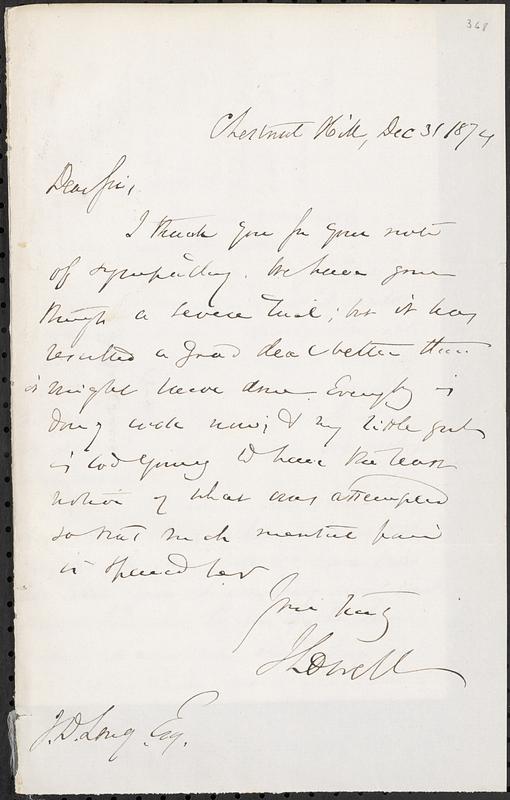 368
Chestnut Hill, Dec 31 1874
Dear Sir,
I thank you for your note
of sympathy. We have gone
through a severe trial; but it has
resulted a good deal better than
it might have done. Everything is
doing well now; & my little girl
is too young to have the least
notion of what was attempted
so that much mental pain
is spared her
Yours truly
J Lowell
J. D. Long, Esq.